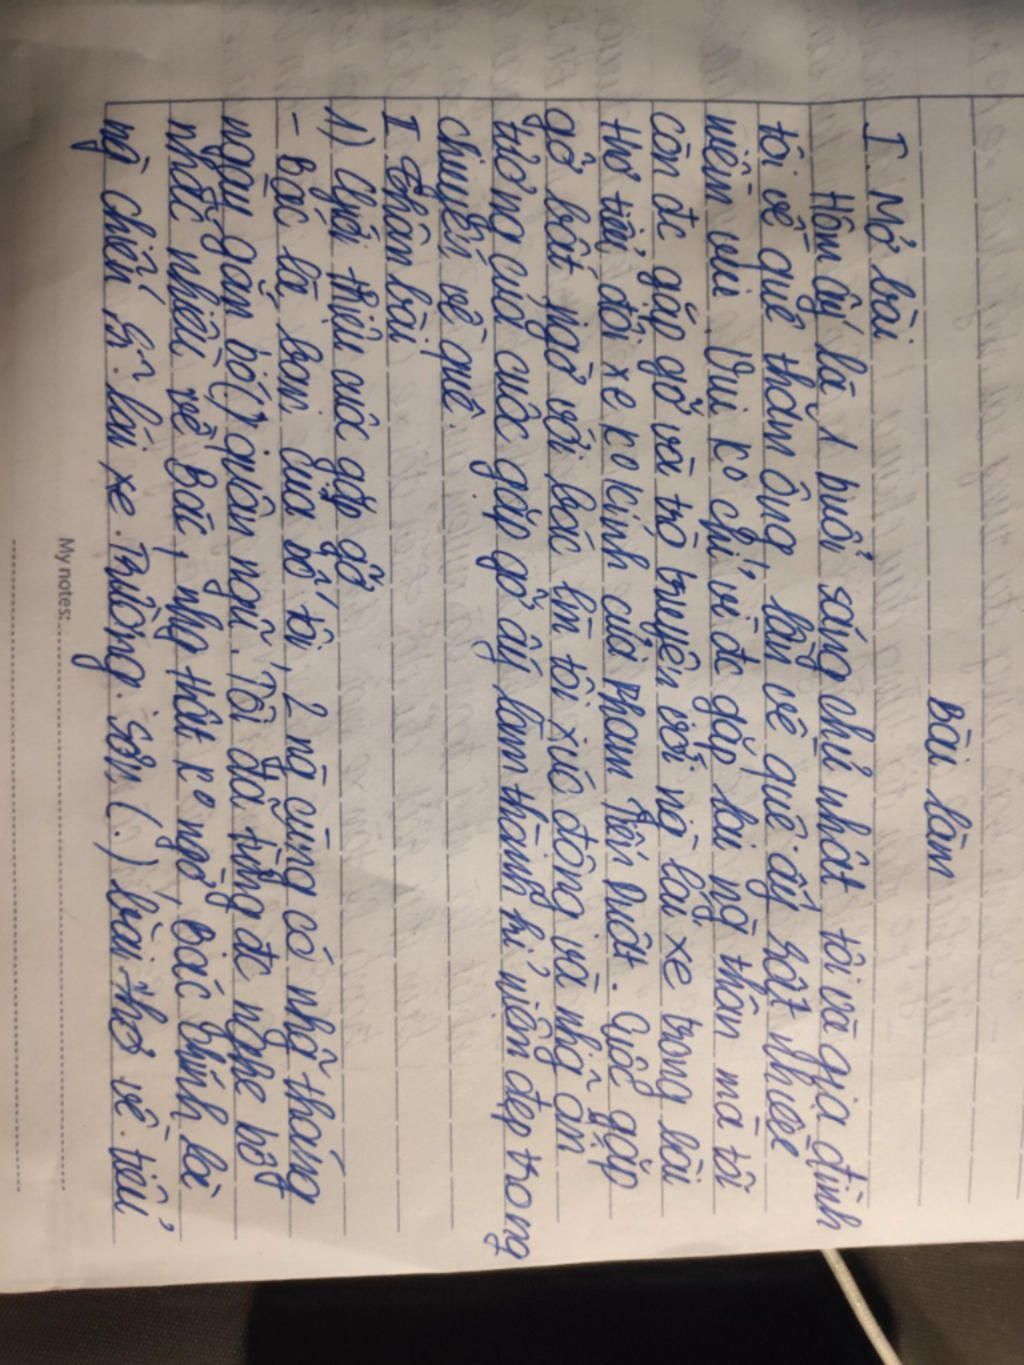 Bài làm
I. Mở bài
Hôm ấy là 1 buổi sáng chủ nhật tôi và gia đình
tôi về quê thăm ông, lần về quê ấy rất nhiều
niềm vui. Vui k° chỉ vì đc gặp lại ng thân mà tôi
còn đc gặp gỡ và trò truyện với ng lái xe trong bài
thơ tiểu đội xe k° kính của Phạm Tiến Duật. Cuộc gặp
gỡ bất ngờ với bác làm tôi xúc động và nhg ấn
tượng của cuộc gặp gỡ ấy làm thành kỉ niệm đẹp trong
chuyến về quê.
I Thân bài
1) Giới thiệu cuộc gặp gỡ
- Bác là bạn của bố tôi, 2 ng cùng có nhg tháng
ngày gắn bó (.) quân ngũ. Tôi đã từng đc nghe bố
nhắc nhiều về Bác, nhg thật k° ngờ Bác chính là
ng chiến sĩ lái xe. Trường. Sơn (.) bài thơ về. tiểu
My notes: